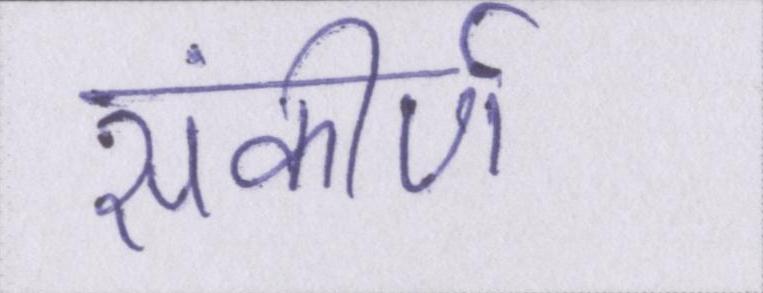 संकीर्ण